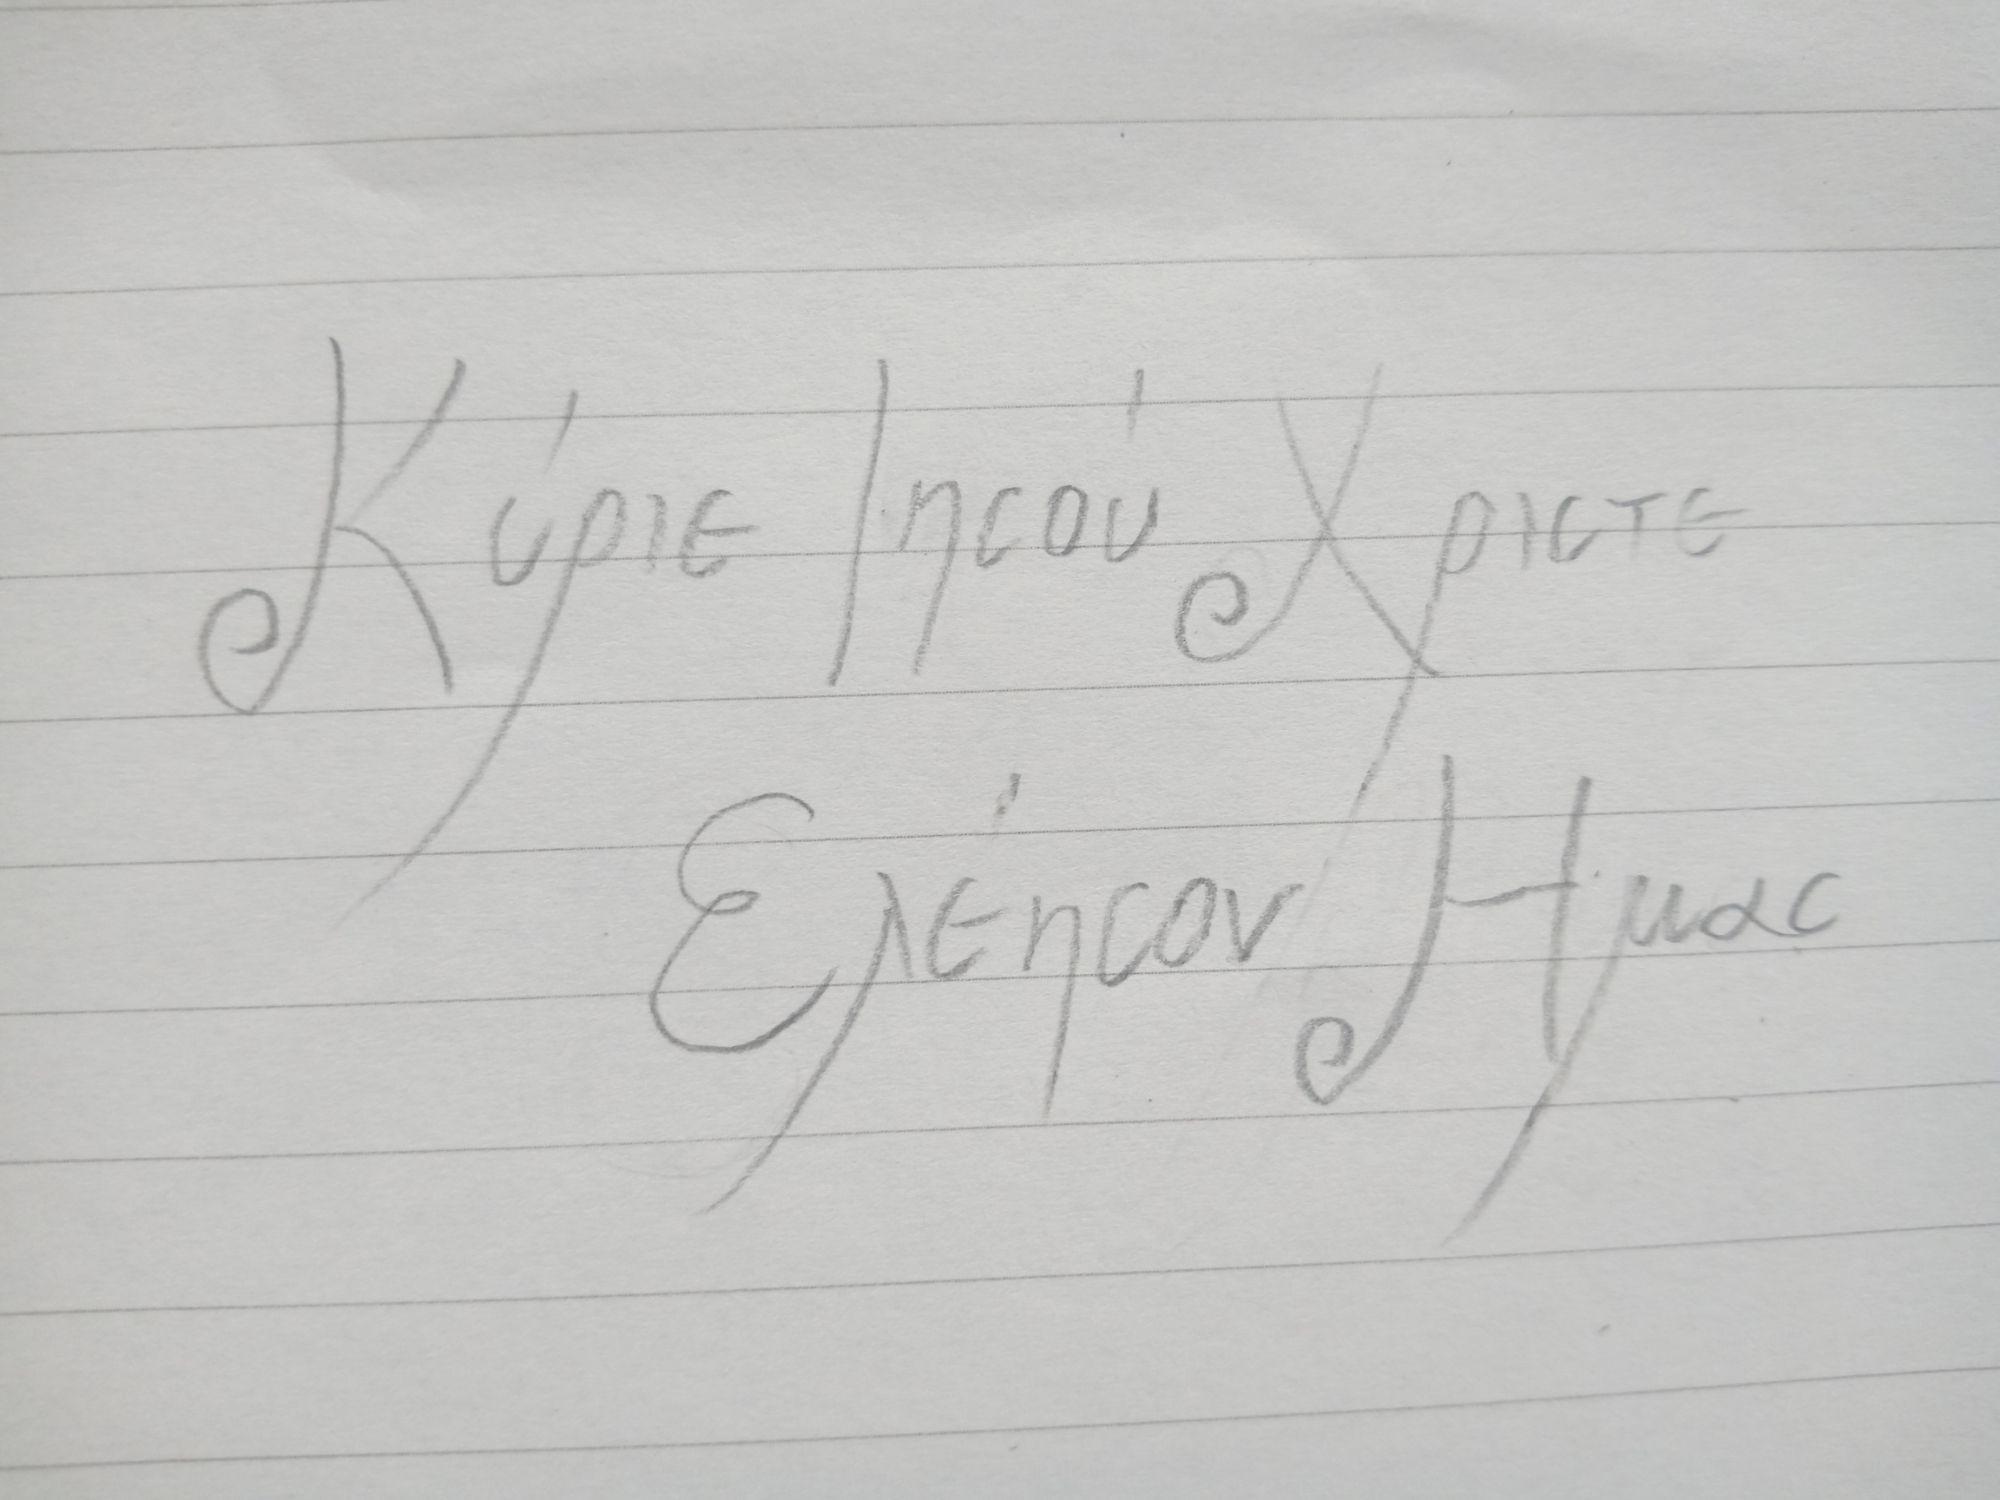 Κύριε Ιησού Χριστε
Ελέησον Ημας